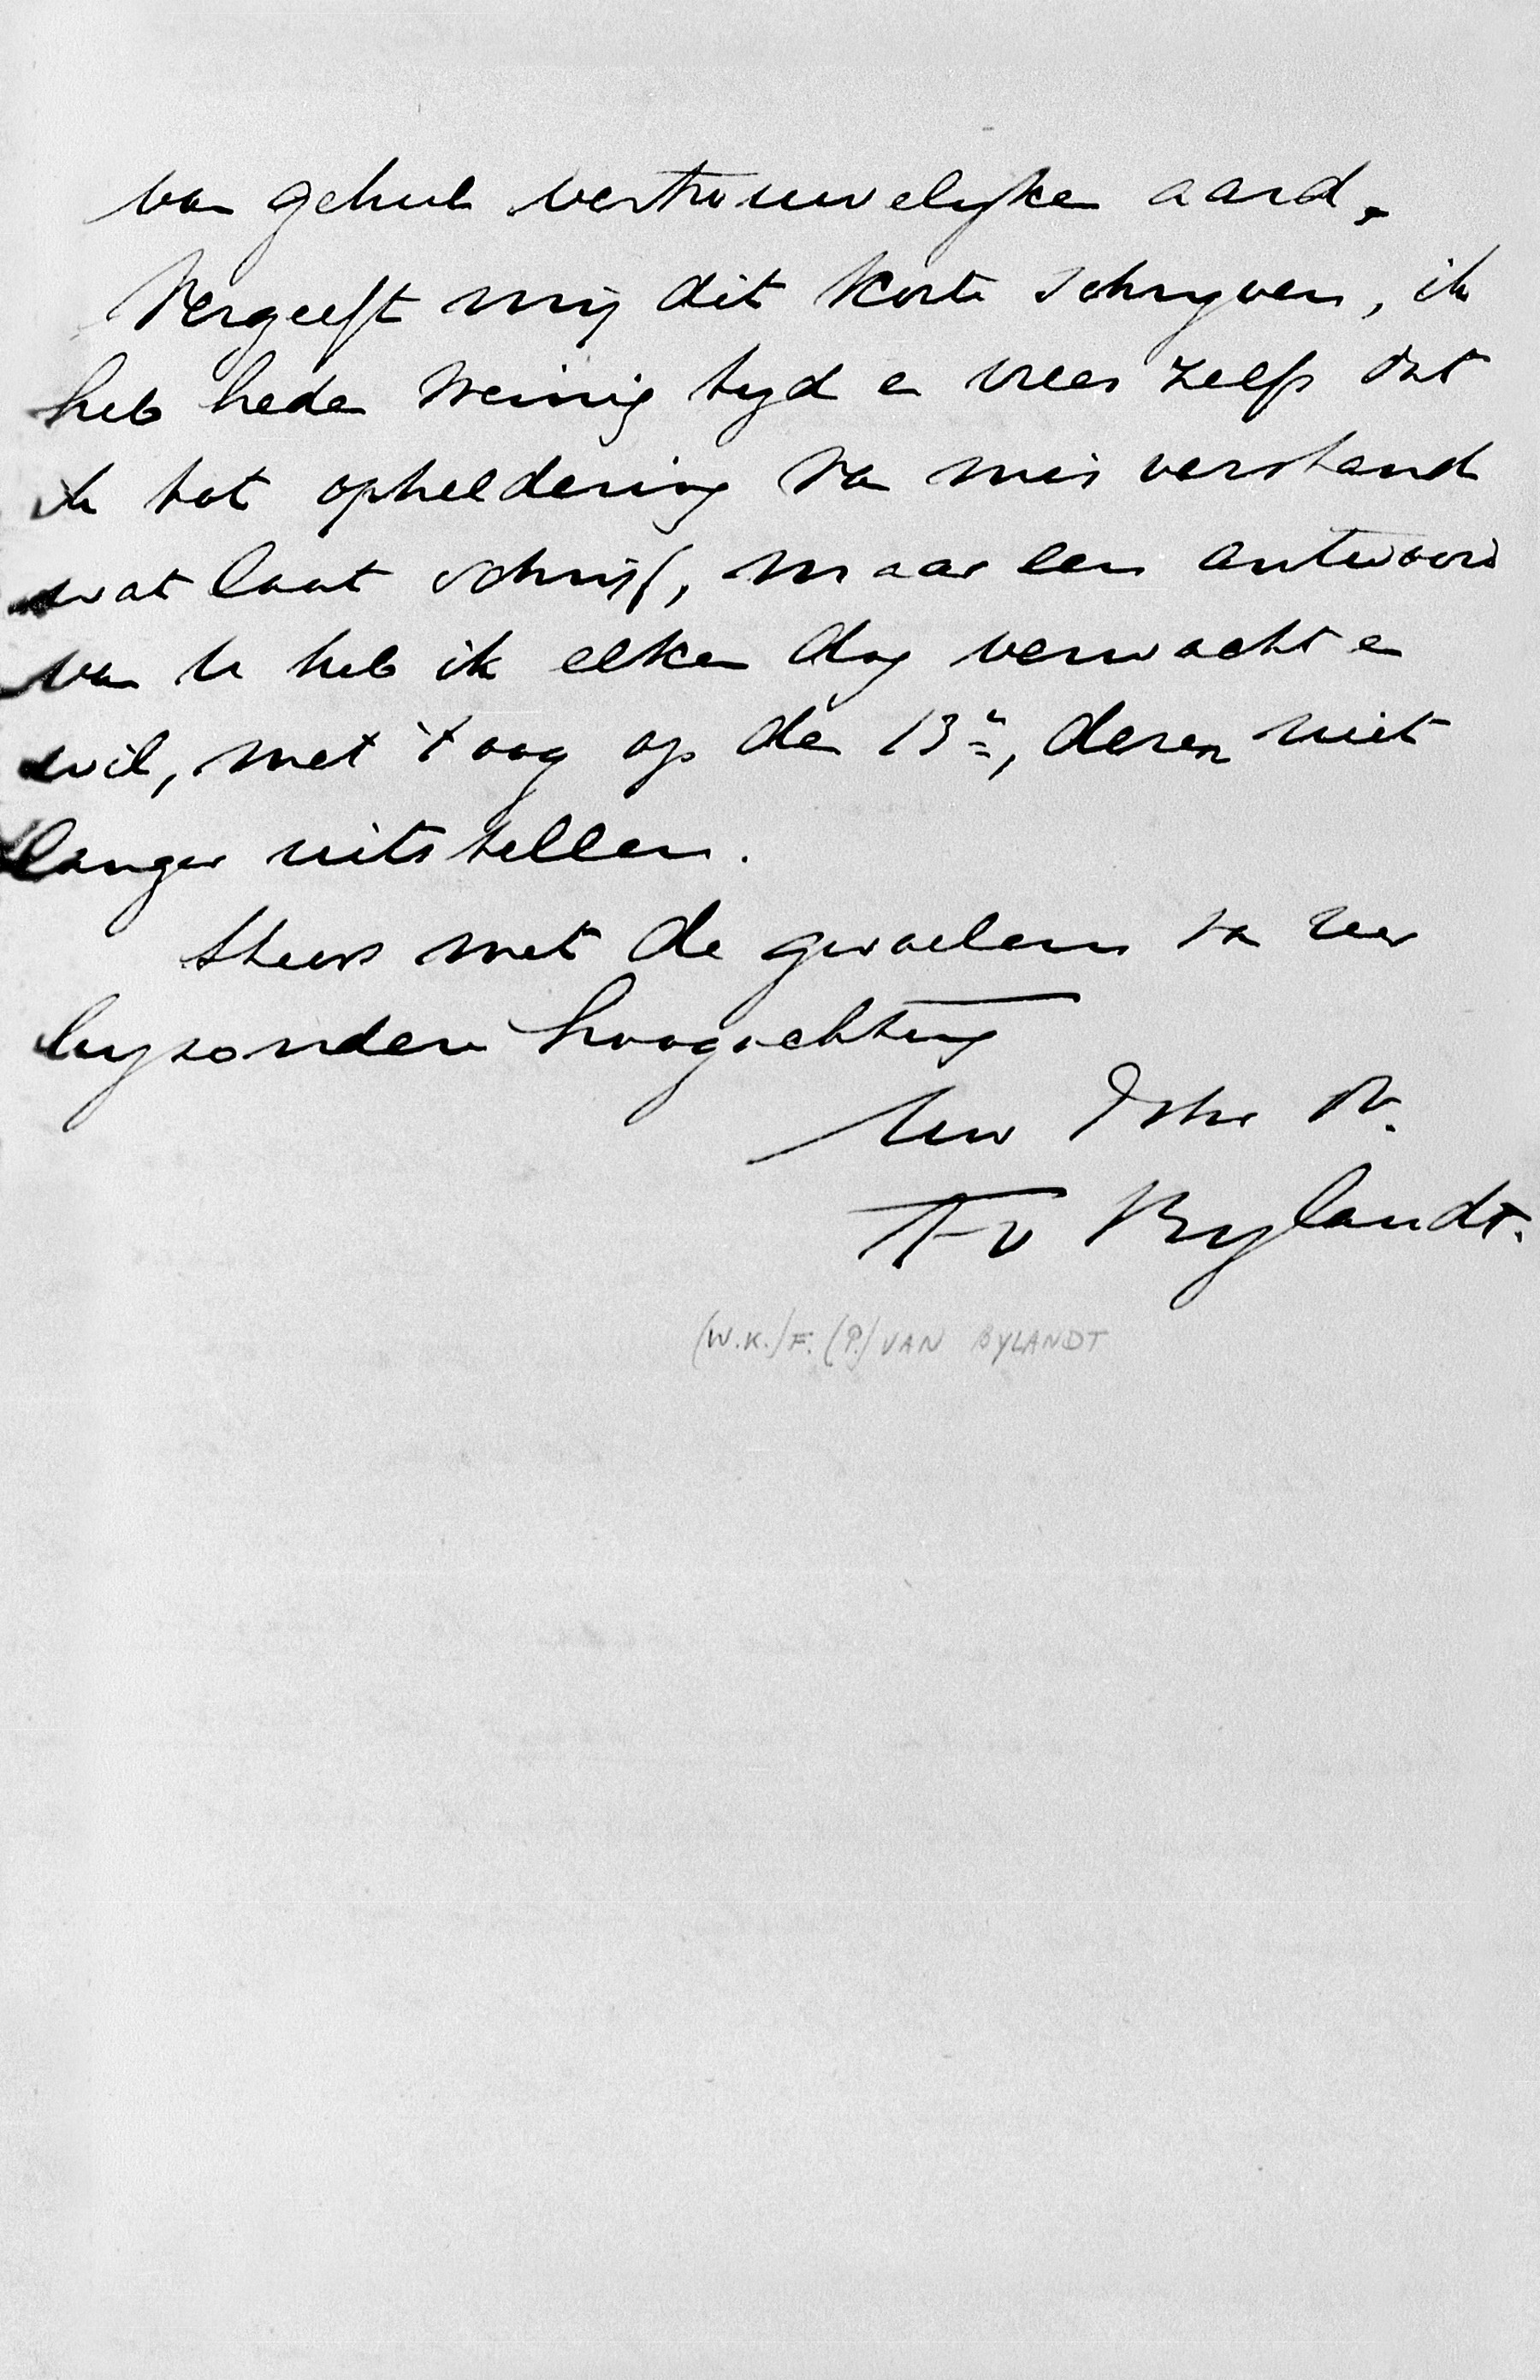 van geheel vertrouwelyken aard.
Vergeeft mij dit korte schryven, ik
heb heden weinig tyd en vrees zelfs dat
ik tot opheldering van misverstand
wat laat schrijf, maar een antwoord
van U heb ik elken dag verwacht en
wil, met 't oog op den 13n, dezen niet
langer uitstellen.
Steeds met de gevoelens van zeer
byzondere hoogachting
Uw Dw
F v Bylandt.
(W.K.) F. (P.) VAN BYLANDT